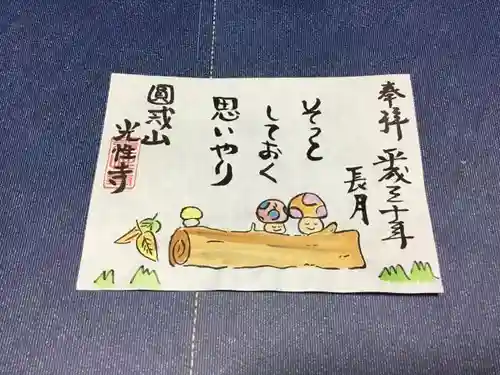 奉拝 平成三十年
長月
そっと
しておく
思いやり
圓戒山
光性寺